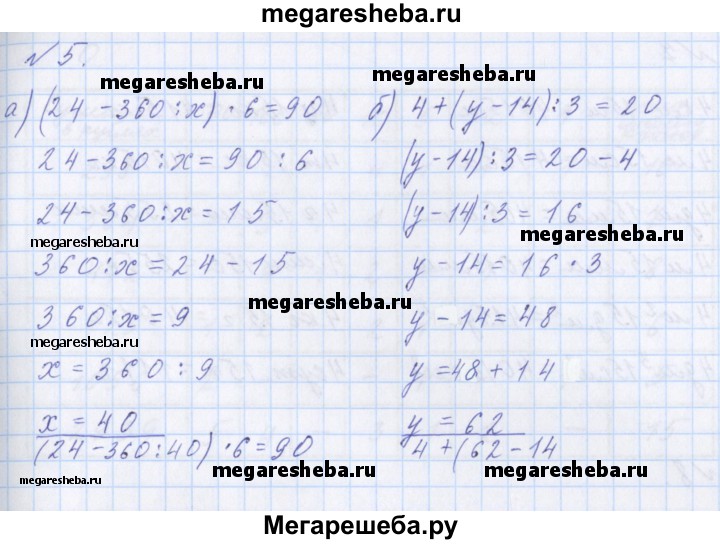 megaresheba.ru
№ 5.
megaresheba.ru
megaresheba.ru
а) (24 - 360 : x) · 6 = 90
24 - 360 : x = 90 : 6
24 - 360 : x = 15
megaresheba.ru
360 : x = 24 - 15
megaresheba.ru
360 : x = 9
megaresheba.ru
x = 360 : 9
x = 40
(24 - 360 : 40) · 6 = 90
megaresheba.ru
б) 4 + (y - 14) : 3 = 20
(y - 14) : 3 = 20 - 4
(y - 14) : 3 = 16
megaresheba.ru
y - 14 = 16 · 3
y - 14 = 48
y = 48 + 14
y = 62
4 + (62 - 14
megaresheba.ru
Мегарешеба.ру